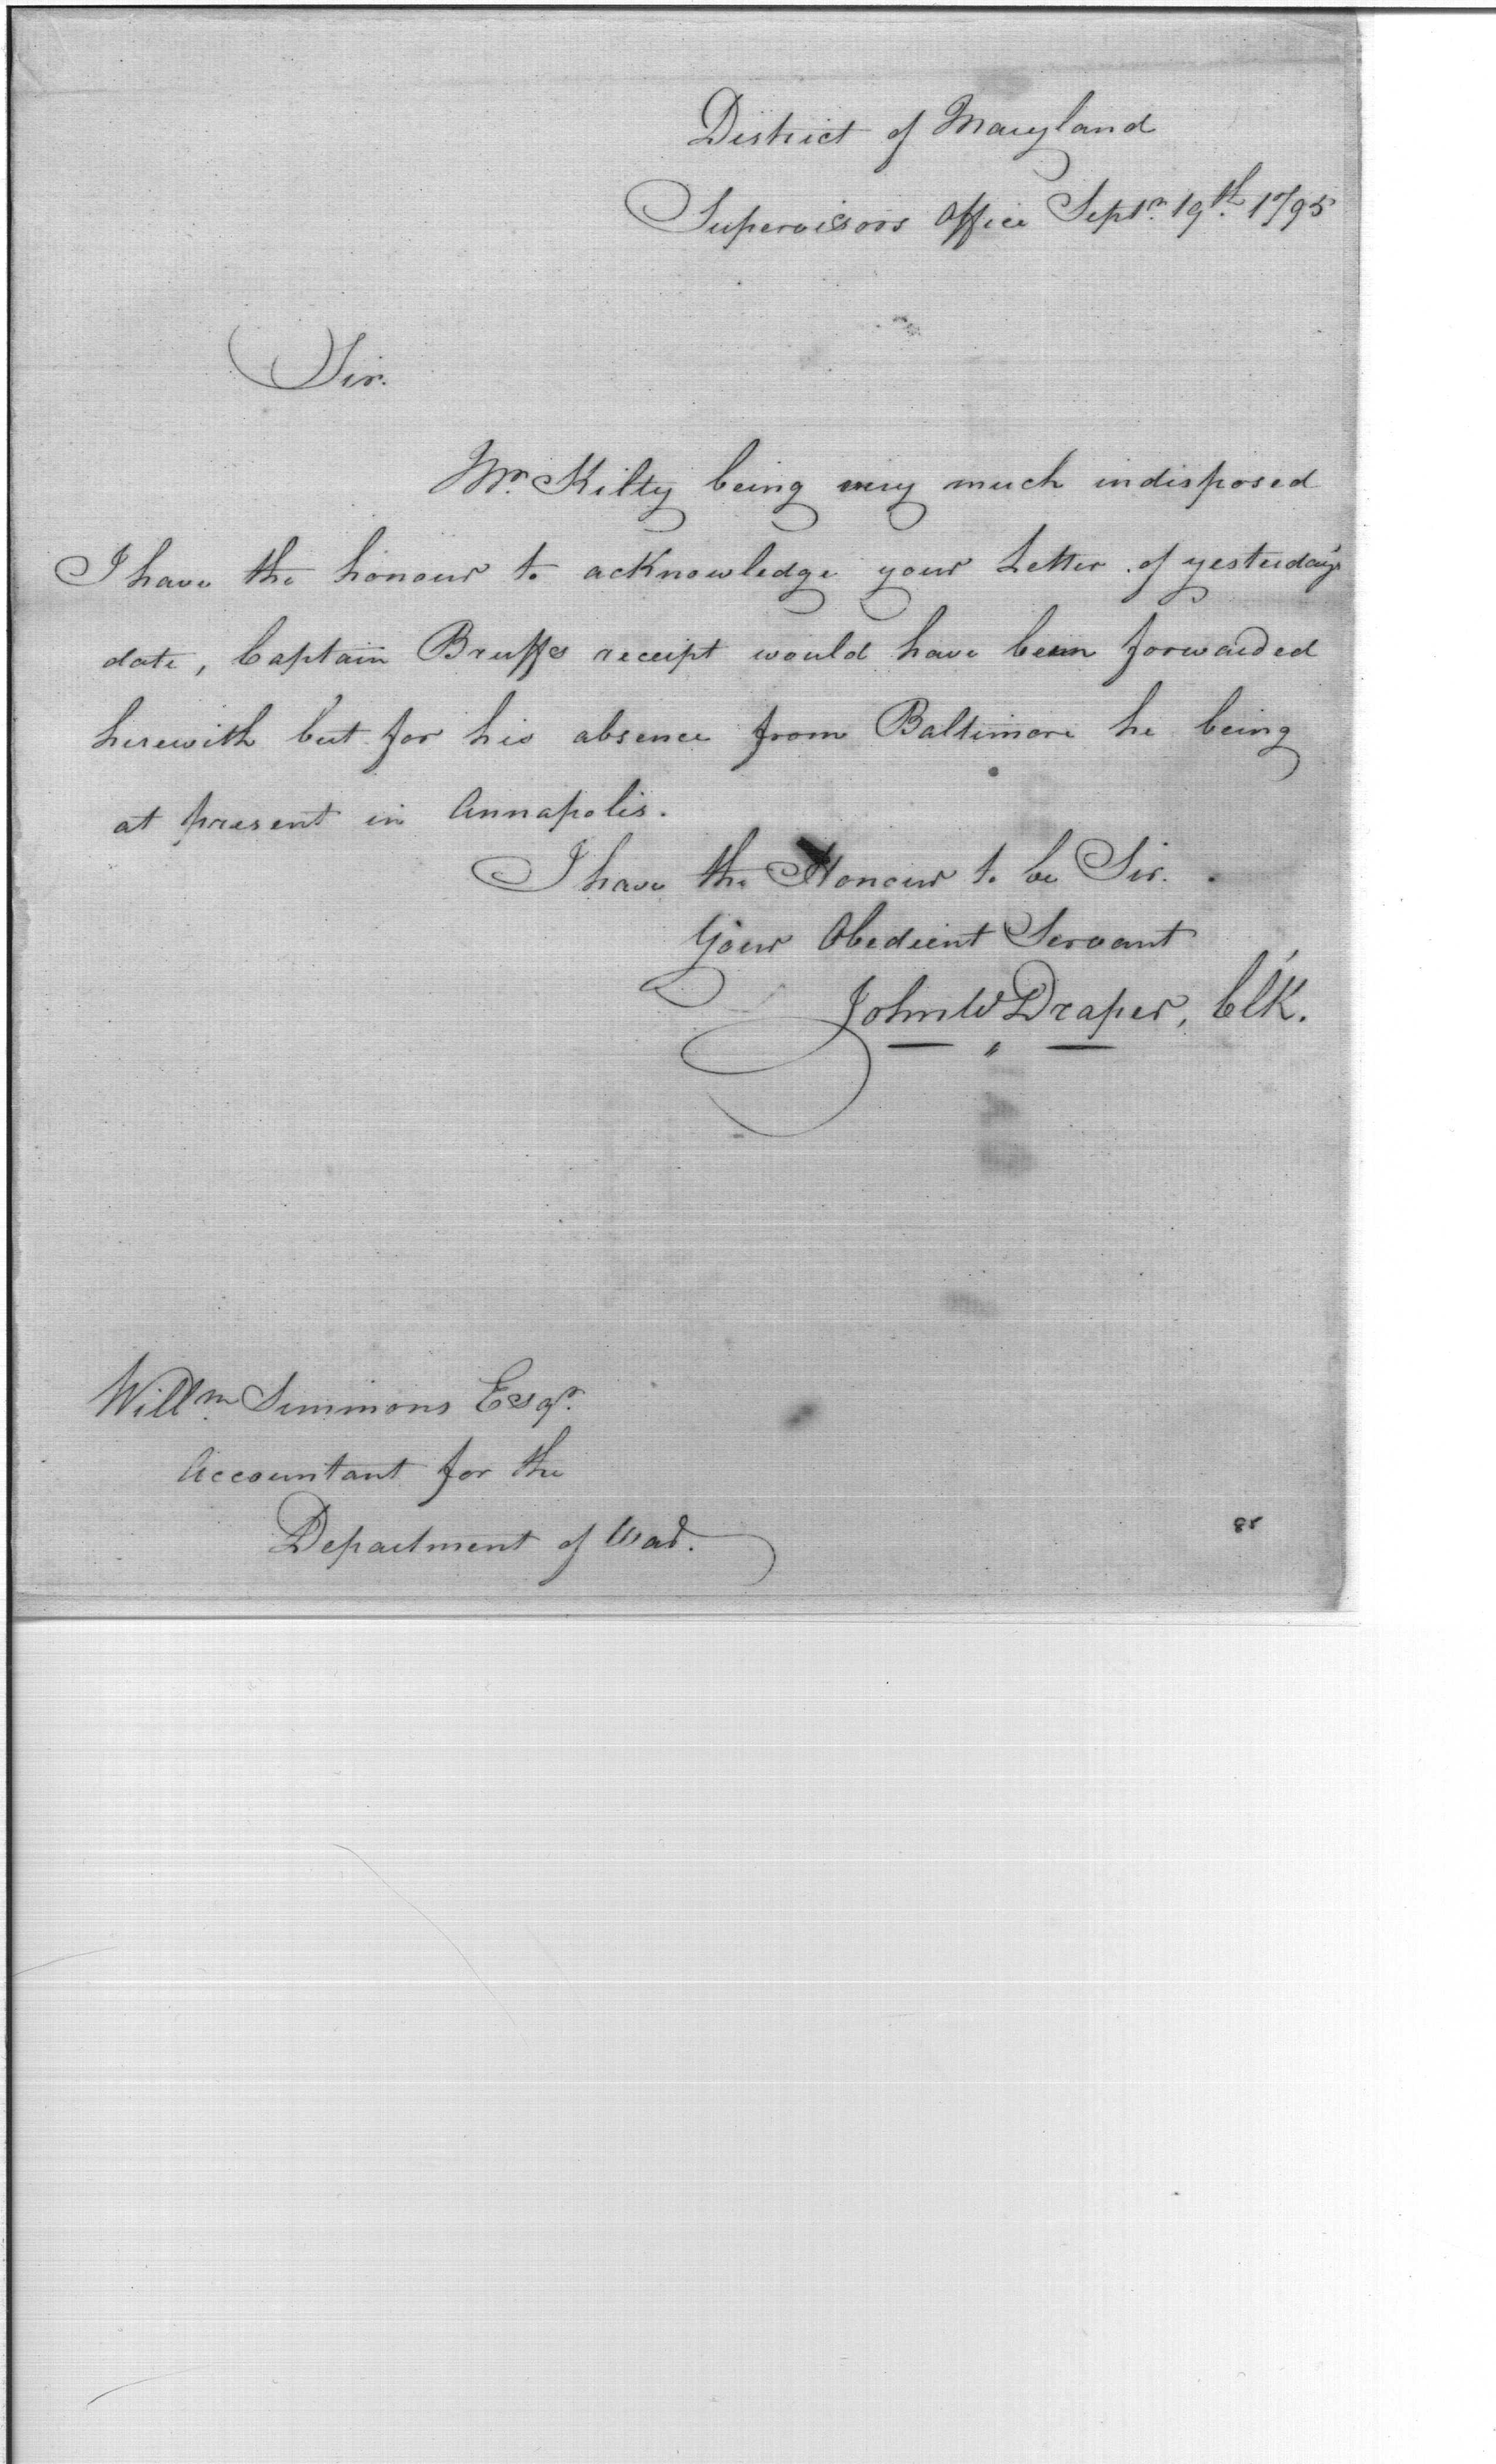 District of Maryland
Supervisors Office Septr. 19th. 1795
Sir.
Mr. Kilty being very much indisposed
I have the honour to acKnowledge your Letter of yesterday's
date, Captain Bruffs receipt would have been forwarded
herewith but for his absence from Baltimore he being
at present in Annapolis.
I have the Honour to be Sir.
Your Obedient Servant
John W Draper, ClK.
Willm. Simmons Esqr.
Accountant for the
Department of War.